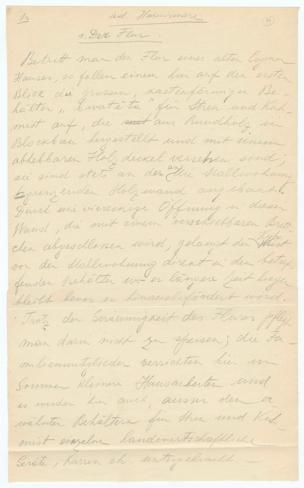 1)
4
a. Der Flur.
Betritt man den Flur eines alten
Hauses, so fallen einem hier auf den ersten
Blick die grossen, kastenförmigen Be-
hälter " " für Streu und Kuh-
mist auf, die aus Rundholz in
Blockbau hergestellt und mit einem
abhebbaren Holzdeckel versehen sind;
sie sind stets an der die Stallwohnung
begrenzenden Holzwand angebaut.
Durch eine viereckige Öffnung in dieser
Wand, die mit einem verschiebbaren Brett-
chen abgeschlossen wird, gelangt der Mist
von der Stallwohnung direkt in den betref-
fenden Behälter wo er längere Zeit liegen
bleibt bevor er hinausbefördert wird.
Trotz der Geräumigkeit des Flures pflegt
man darin nicht zu speisen; die Fa-
milienmitglieder verrichten hier im
Sommer kleinere Hausarbeiten und
es werden hier auch, ausser den er-
wähnten Behältern für Streu und Kuh-
mist einzelne landwirtschaftliche
Geräte,